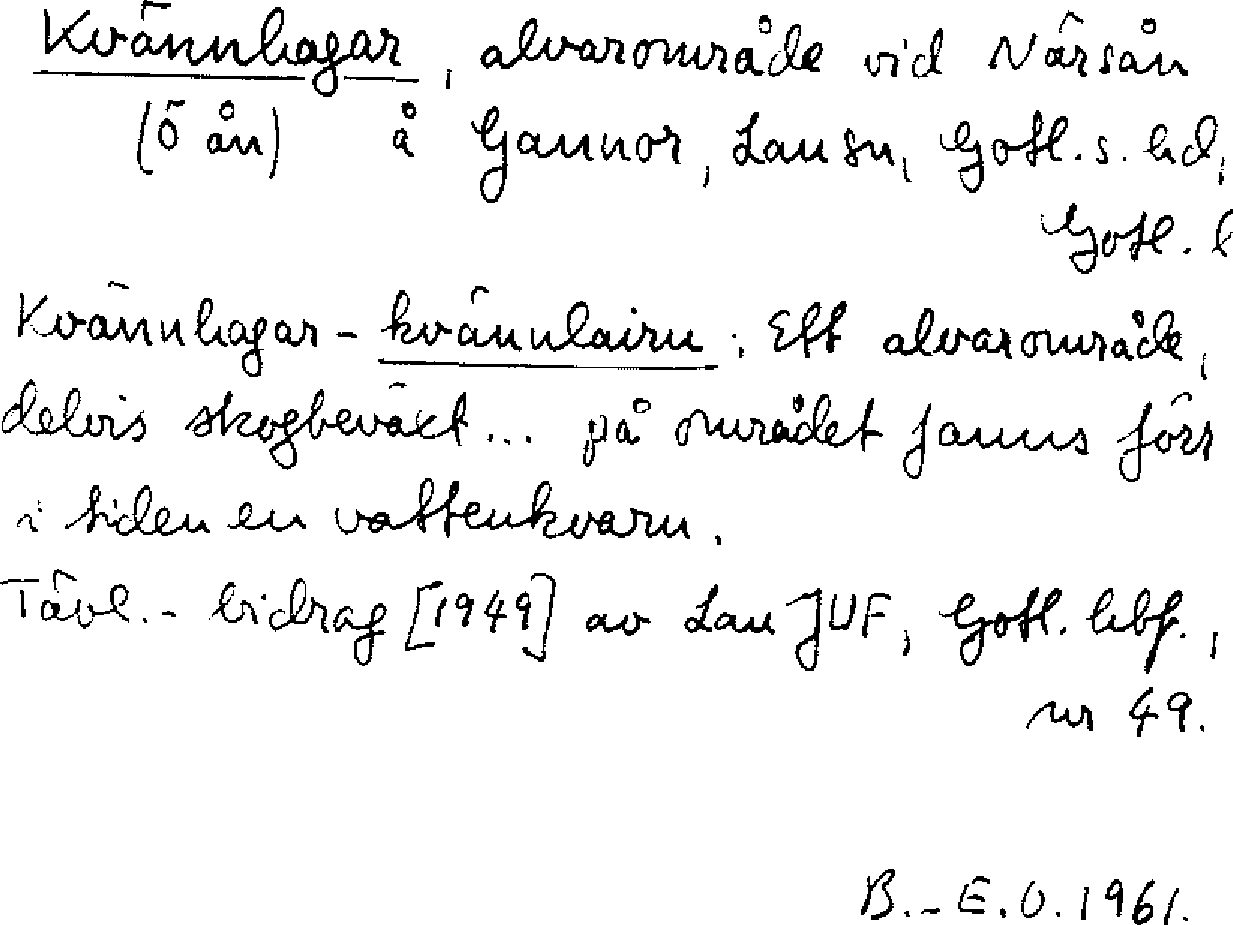 Kvännhagar, alvarområde vid Närsån
(Ö ån) å Gannor, Lau sn, Gotl. s. hd,
Gotl. l
Kvännhagar - kvännlairu. Ett alvarområde,
delvis skogbeväxt... på området fanns förr
i tiden en vattenkvarn.
Tävl.- bidrag [1949] av Lau JUF, Gotl. hbf.,
nr 49.
B.-E.O. 1961.